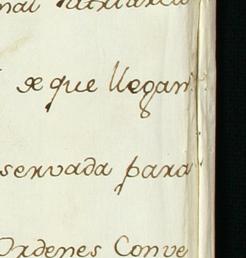 se que llegan
servada para
Ordenes Conve